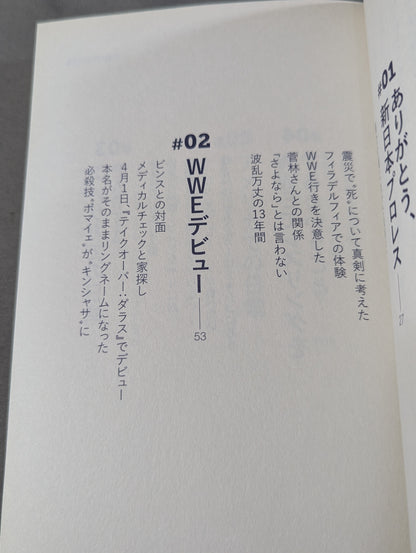 #01
ありがとう、
新日本プロレス
27
震災で“死”について真剣に考えた
フィラデルフィアでの体験
WWE行きを決意した
菅林さんとの関係
「さよなら」とは言わない
波乱万丈の13年間
#02
WWEデビュー
53
ビンスとの対面
メディカルチェックと家探し
4月1日、『テイクオーバー：ダラス』でデビュー
本名がそのままリングネームになった
必殺技“ボマイェ”が“キンシャサ”に